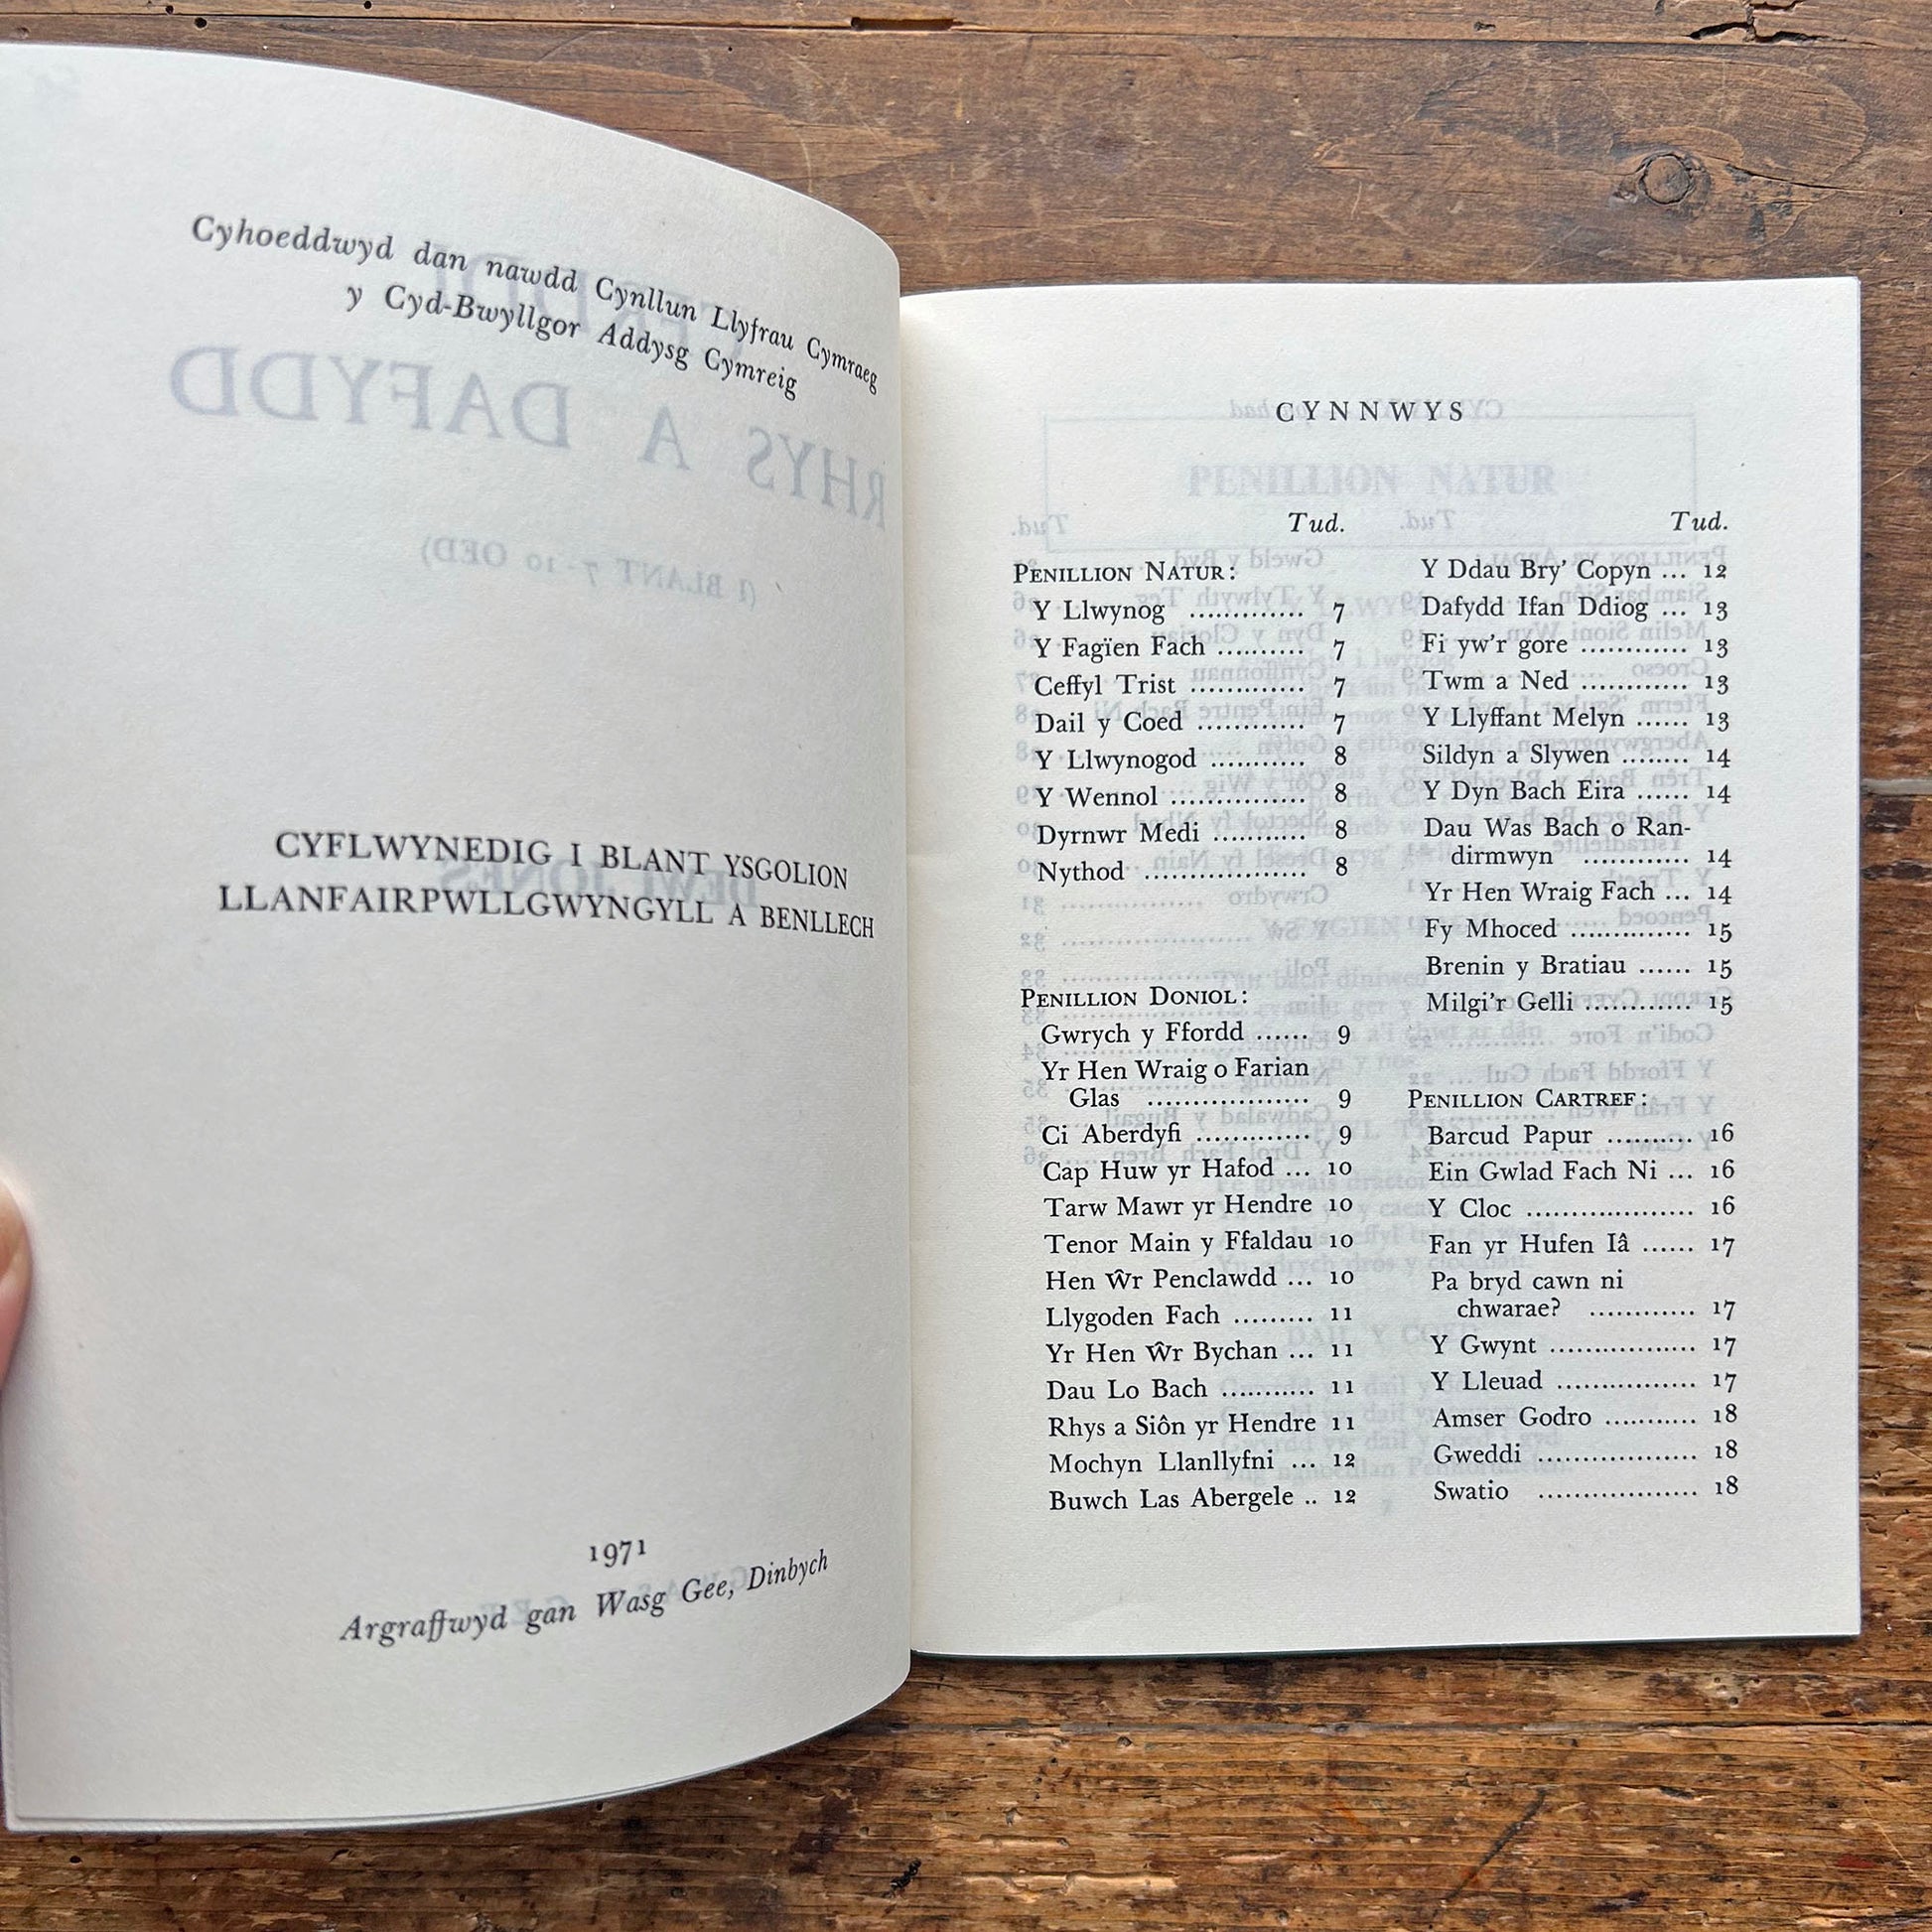 Cyhoeddwyd dan nawdd Cynllun Llyfrau Cymraeg
y Cyd-Bwyllgor Addysg Cymreig
CYFLWYNEDIG I BLANT YSGOLION
LLANFAIRPWLLGWYNGYLL A BENLLECH
1971
Argraffwyd gan Wasg Gee, Dinbych
CYNNWYS
Tud.
PENILLION NATUR:
Y Llwynog ............. 7
Y Fagïen Fach .......... 7
Ceffyl Trist ............. 7
Dail y Coed ............ 7
Y Llwynogod ........... 8
Y Wennol ............... 8
Dyrnwr Medi .......... 8
Nythod .................. 8
PENILLION DONIOL:
Gwrych y Ffordd ...... 9
Yr Hen Wraig o Farian
Glas .................. 9
Ci Aberdyfi ............. 9
Cap Huw yr Hafod ... 10
Tarw Mawr yr Hendre 10
Tenor Main y Ffaldau 10
Hen Ŵr Penclawdd ... 10
Llygoden Fach ......... 11
Yr Hen Ŵr Bychan ... 11
Dau Lo Bach ........... 11
Rhys a Siôn yr Hendre 11
Mochyn Llanllyfni ... 12
Buwch Las Abergele .. 12
Tud.
Y Ddau Bry' Copyn ... 12
Dafydd Ifan Ddiog ... 13
Fi yw'r gore ............ 13
Twm a Ned ............ 13
Y Llyffant Melyn ...... 13
Sildyn a Slywen ........ 14
Y Dyn Bach Eira ...... 14
Dau Was Bach o Ran-
dirmwyn ............ 14
Yr Hen Wraig Fach ... 14
Fy Mhoced .............. 15
Brenin y Bratiau ...... 15
Milgi'r Gelli ............ 15
PENILLION CARTREF:
Barcud Papur .......... 16
Ein Gwlad Fach Ni ... 16
Y Cloc .................... 16
Fan yr Hufen Iâ ...... 17
Pa bryd cawn ni
chwarae? ............ 17
Y Gwynt ................. 17
Y Lleuad ................ 17
Amser Godro ........... 18
Gweddi ................... 18
Swatio ................... 18